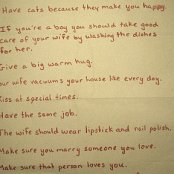 Have cats because they make you happy.
IF you're a boy you should take good
care of your wife by washing the dishes
for her.
Give a big warm hug.
our wife vacuums your house like every day.
Kiss at special times.
Have the same job.
The wife should wear lipstick and nail polish.
Make sure you marry someone you love.
Make sure that person loves you.